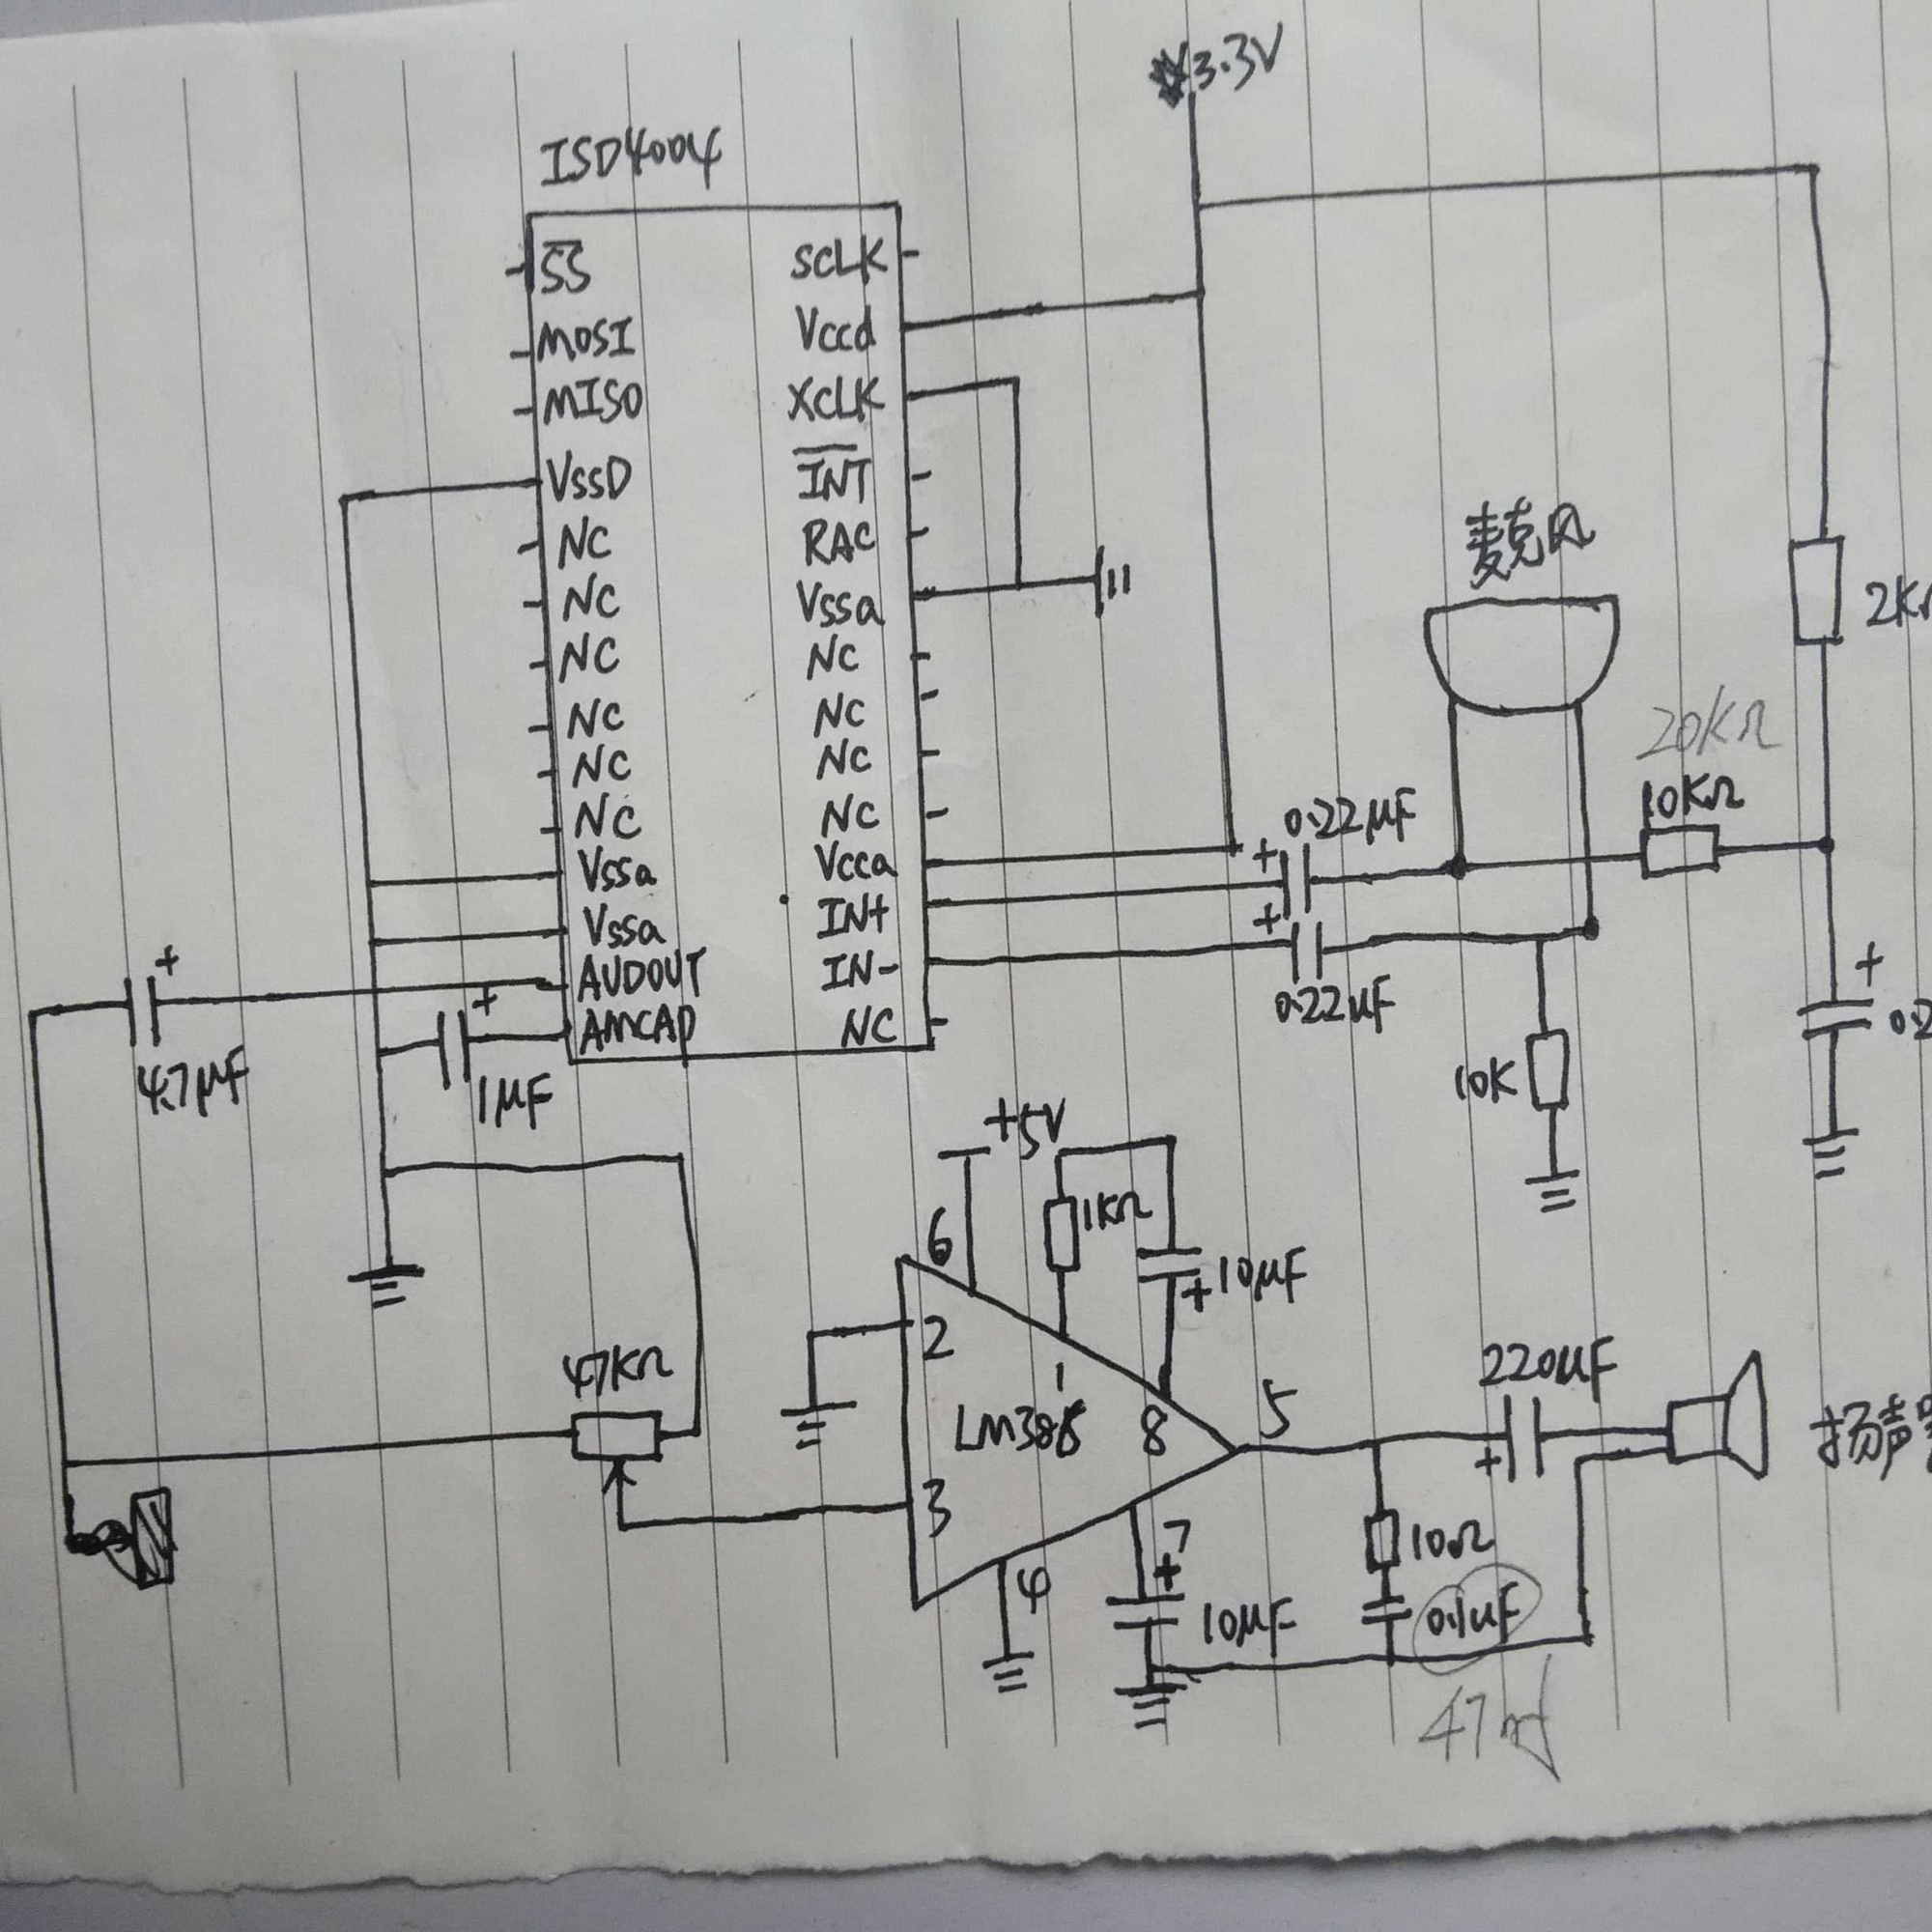 3.3V
ISD4004
SS
SCLK
MOSI
Vccd
MISO
XCLK
VssD
INT
NC
RAC
NC
Vssa
NC
NC
NC
NC
NC
NC
NC
NC
Vssa
Vcca
Vssa
IN+
AUDOUT
IN-
AMCAP
NC
麦克风
2K
20KΩ
10KΩ
+
0.22μF
+
0.22μF
10K
+
0.2
+
4.7μF
+
1μF
+5V
6
1KΩ
+10μF
2
47KΩ
1
LM386
8
5
220μF
+
扬声
3
4
7
+
10μF
10Ω
0.1uF
47nf